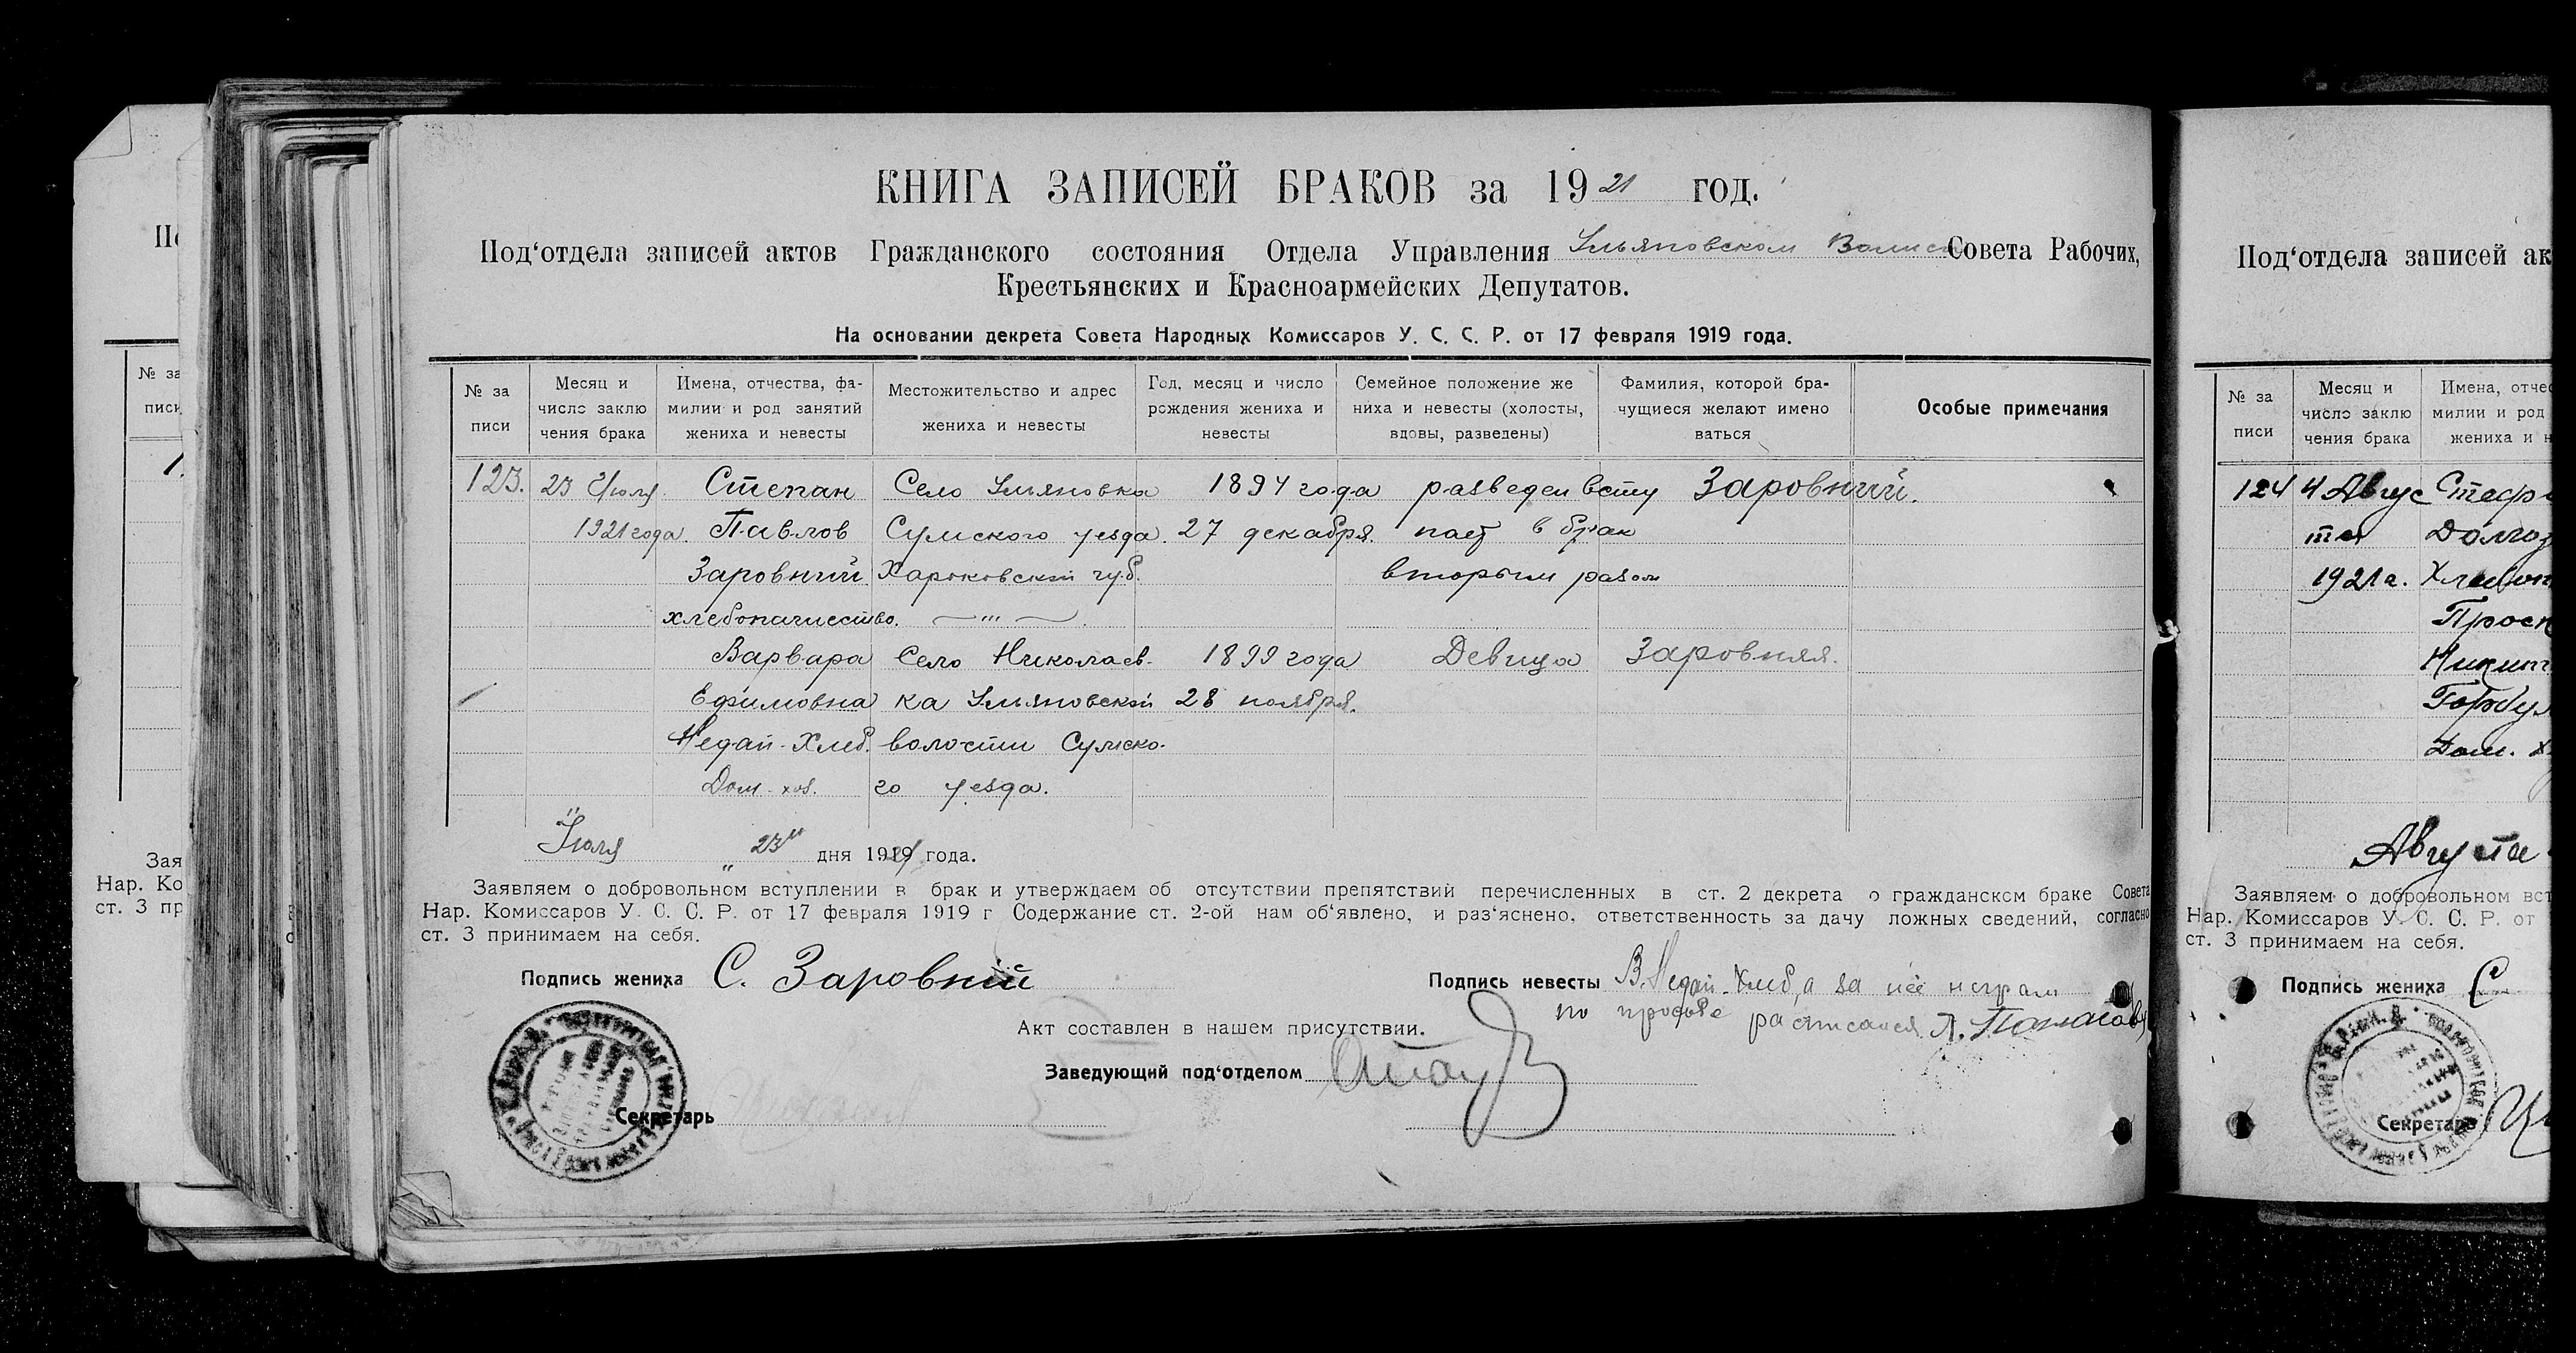 КНИГА ЗАПИСЕЙ БРАКОВ за 1921 год.
Под‘отдела записей актов Гражданского состояния Отдела Управления Ульяновском Волис Совета Рабочих,
Крестьянских и Красноармейских Депутатов.
На основании декрета Совета Народных Комиссаров У. С. С. Р. от 17 февраля 1919 года.
№ за писи
Месяц и число заклю чения брака
Имена, отчества, фа- милии и род занятий жениха и невесты
Местожительство и адрес жениха и невесты
Год, месяц и число рождения жениха и невесты
Семейное положение же ниха и невесты (холосты, вдовы, разведены)
Фамилия, которой бра- чущиеся желают имено ваться
Особые примечания
123. 23 Июля Степан Село Ульяновка 1894 года разведен всту Заровний.
1921 года. Павлов Сумского уезда. 27 декабря. пает в брак
Заровний Харьковской губ. вторым разом
хлебопашество. — „ —
Варвара Село Николаев- 1899 года Девица Заровняя.
Ефимовна ка Ульяновской 28 ноября.
Недай-Хлеб. волости Сумско-
Дом. хоз. го уезда.
Июля „ 23го дня 1921 года.
Заявляем о добровольном вступлении в брак и утверждаем об отсутствии препятствий перечисленных в ст. 2 декрета о гражданском браке Совета
Нар. Комиссаров У. С. С. Р. от 17 февраля 1919 г Содержание ст. 2-ой нам об‘явлено, и раз‘яснено, ответственность за дачу ложных сведений, согласно
ст. 3 принимаем на себя.
Подпись жениха С. Заровній
Подпись невесты В. Недай-Хлиб, а за нее неграм
по просьбе расписался А.
Акт составлен в нашем присутствии.
Заведующий под‘отделом
Секретарь
Под‘отдела записей ак
№ за писи
Месяц и число заклю чения брака
Имена, отчес милии и род жениха и н
124 4 Авгус
та
1921 г.
Дом. х
Августа
Заявляем о добровольном вст
Нар. Комиссаров У. С. С. Р. от
ст. 3 принимаем на себя.
Подпись жениха С
Секретарь
№ за писи
Зая
Нар. Ко
ст. 3 пр